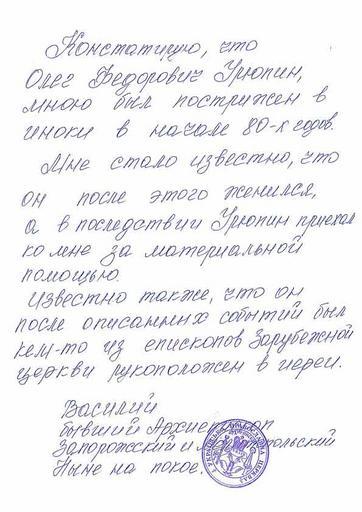 Констатирую, что
Олег Федорович Урюпин,
мною был пострижен в
иноки в начале 80-х годов.
Мне стало известно, что
он после этого женился,
а впоследствии Урюпин приехал
ко мне за материальной
помощью.
Известно также, что он
после описанных событий был
кем-то из епископов Зарубежной
церкви рукоположен в иереи.
Василий
бывший Архиепископ
Запорожский и Мелитопольский
Ныне на покое.